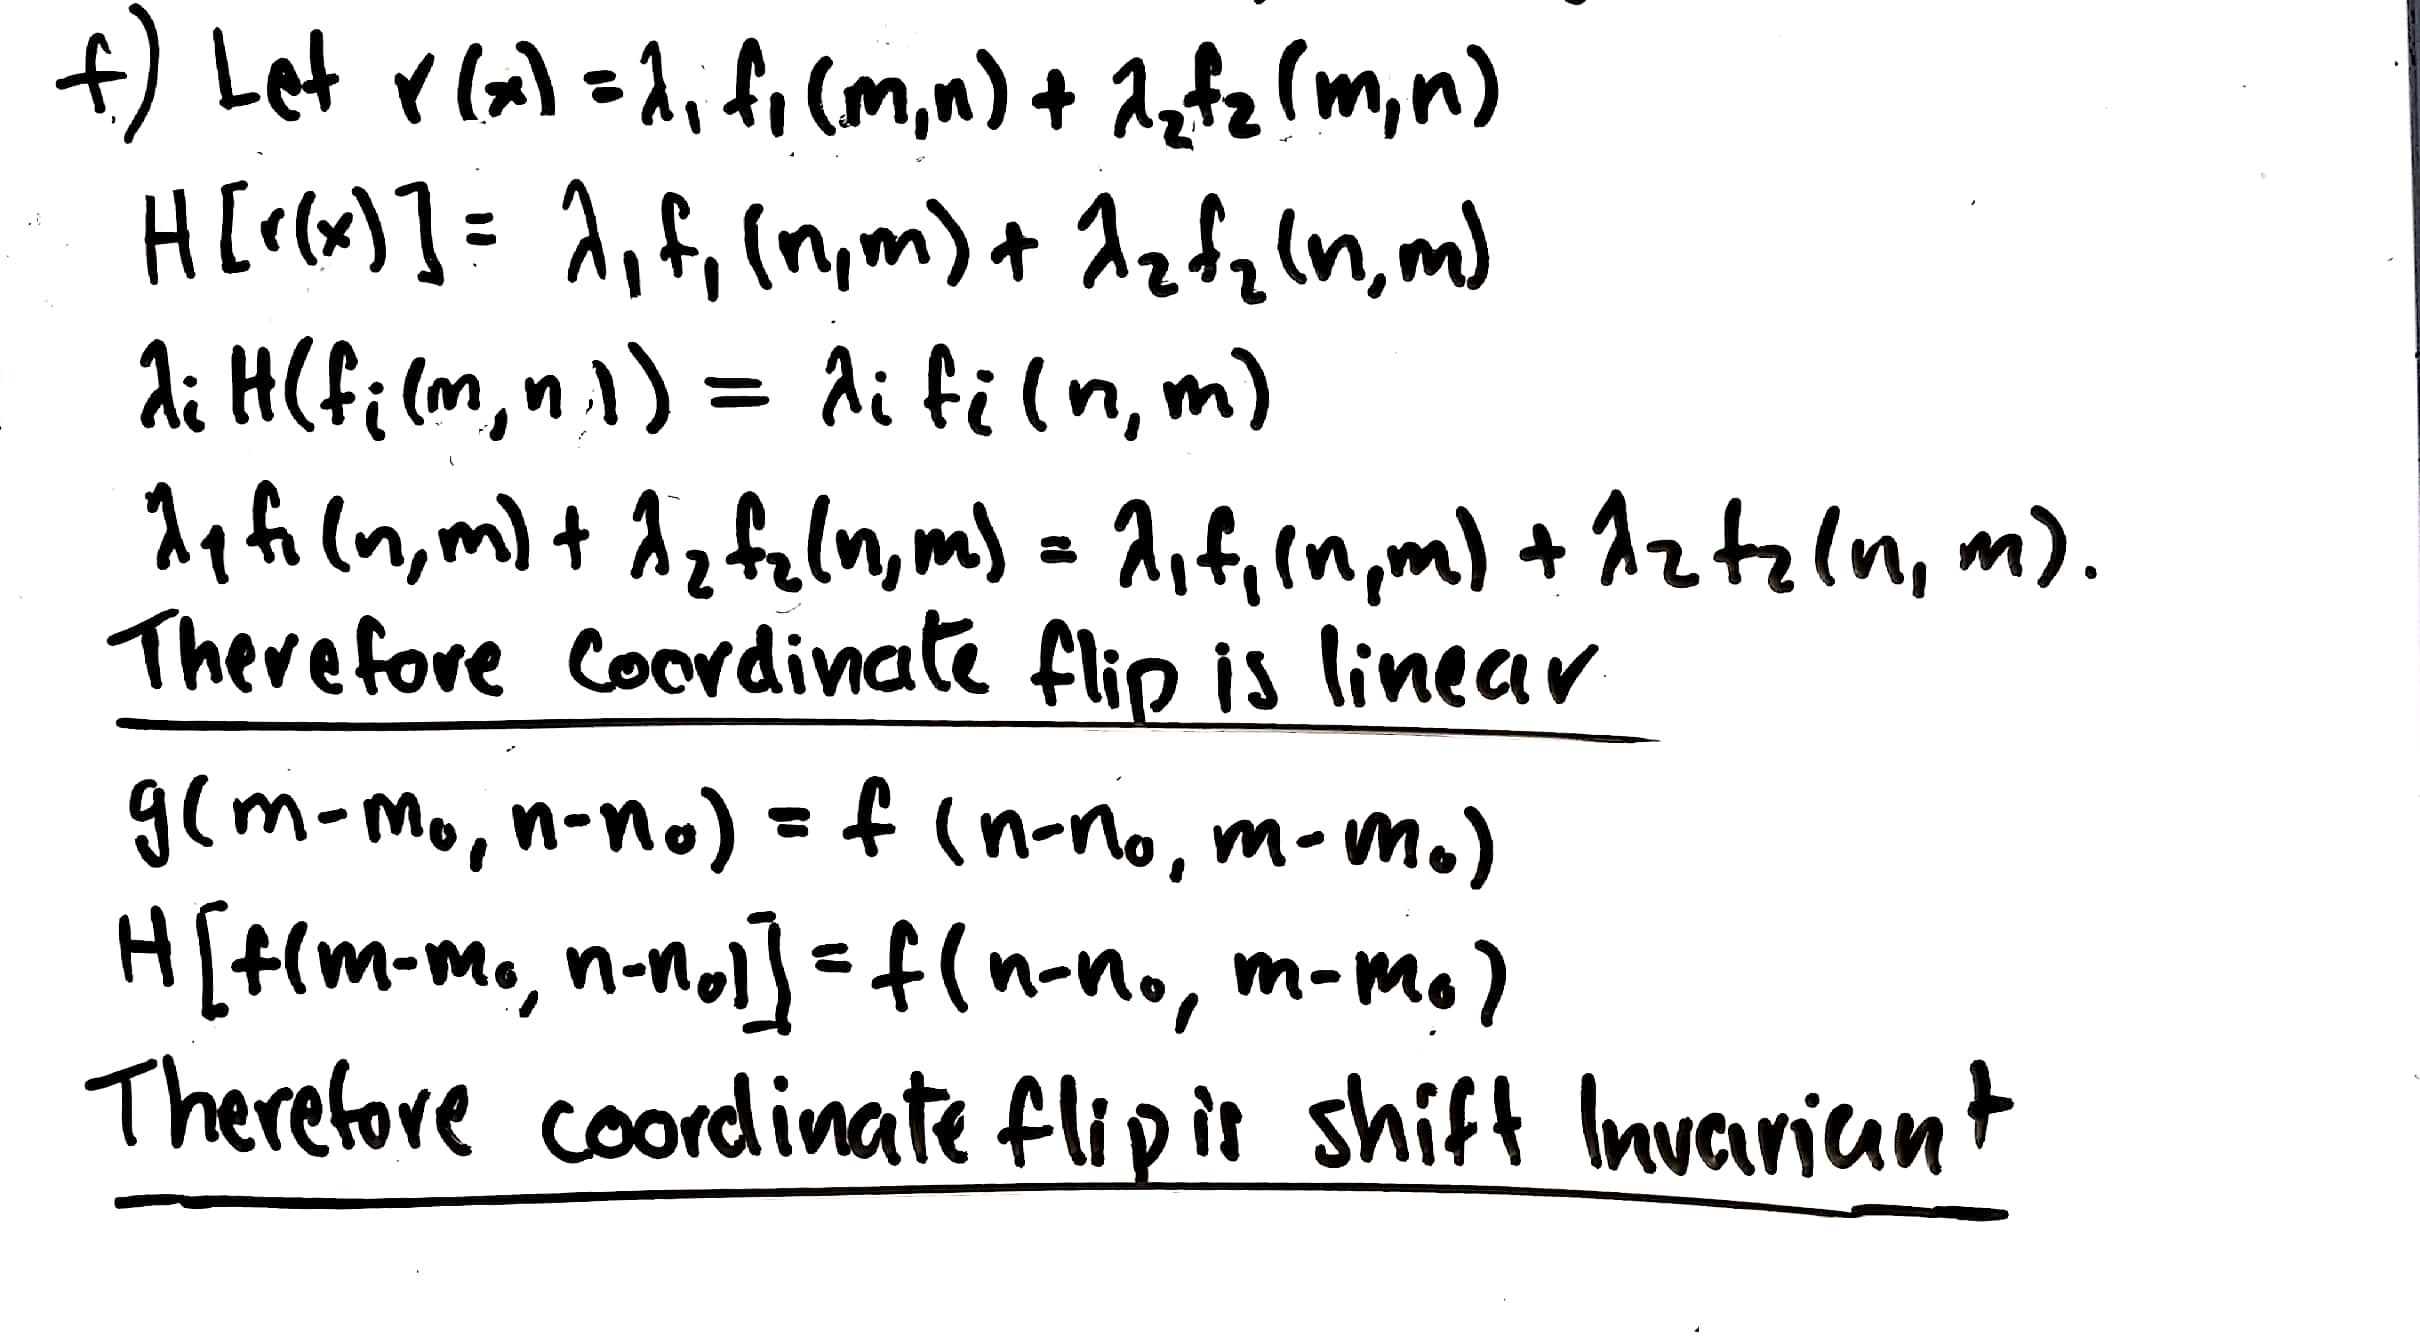 f) Let r(x) = λ₁f₁(m,n) + λ₂f₂(m,n)
H[r(x)] = λ₁f₁(n,m) + λ₂f₂(n,m)
λᵢH(fᵢ(m,n)) = λᵢfᵢ(n,m)
λ₁f₁(n,m) + λ₂f₂(n,m) = λ₁f₁(n,m) + λ₂f₂(n,m).
Therefore Coordinate flip is linear
g(m-m₀, n-n₀) = f(n-n₀, m-m₀)
H[f(m-m₀, n-n₀)] = f(n-n₀, m-m₀)
Therefore coordinate flip is shift Invariant